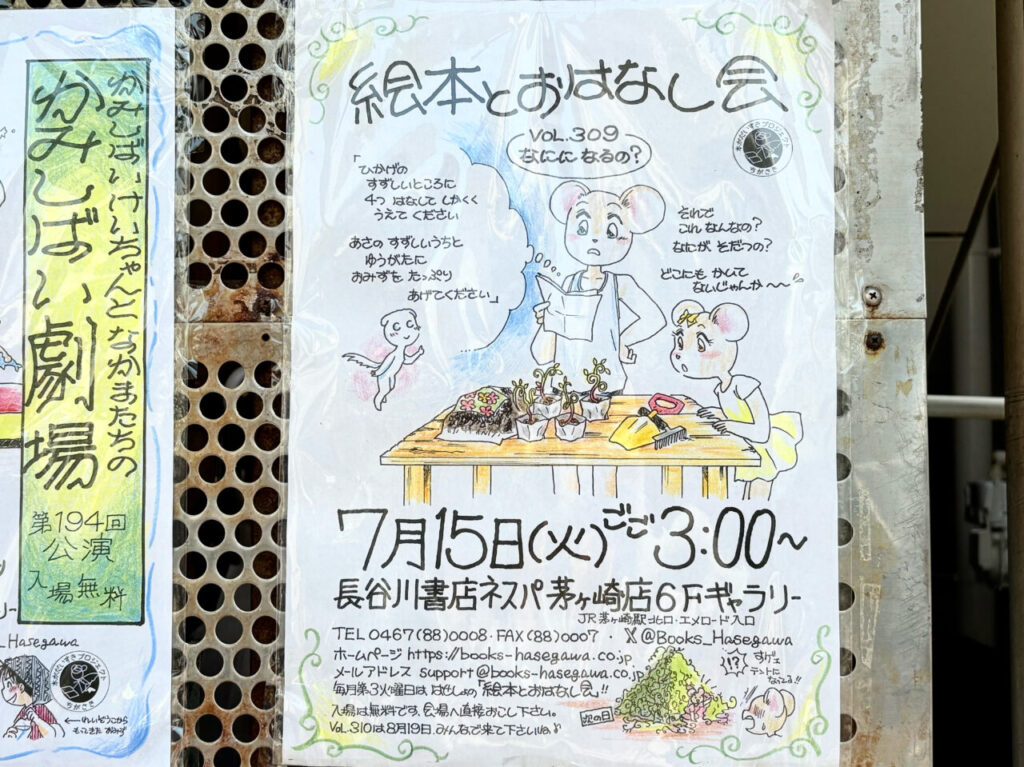 かみしばいけいちゃんとなかまたちの
かみしばい劇場
第194回
公演
入場無料
_Hasegawa
ちがさき
絵本とおはなし会
VOL.309
なにに なるの?
えほんだいすきプロジェクト
ちがさき
「ひかげの
すずしいところに
4つ はなして しかくく
うえて ください
あさの すずしいうちと
ゆうがたに
おみずを たっぷり
あげてください」
それで
これ なんなの?
なにが そだつの?
どこにも かいて
ないじゃんか〜〜
7月15日(火)ごご3:00〜
長谷川書店ネスパ茅ヶ崎店6Fギャラリー
JR茅ヶ崎駅北口・エメロード入口
TEL 0467(88)0008・FAX(88)0007・X@Books_Hasegawa
ホームページ https://books-hasegawa.co.jp
メールアドレス support@books-hasegawa.co.jp
毎月第3火曜日は はせしょの「絵本とおはなし会」!!
入場は無料です。会場へ直接おこし下さい。
VOL.310は8月19日。みんなで来て下さいね♪
次の日
!?
すげェ
テントに
なってる!!